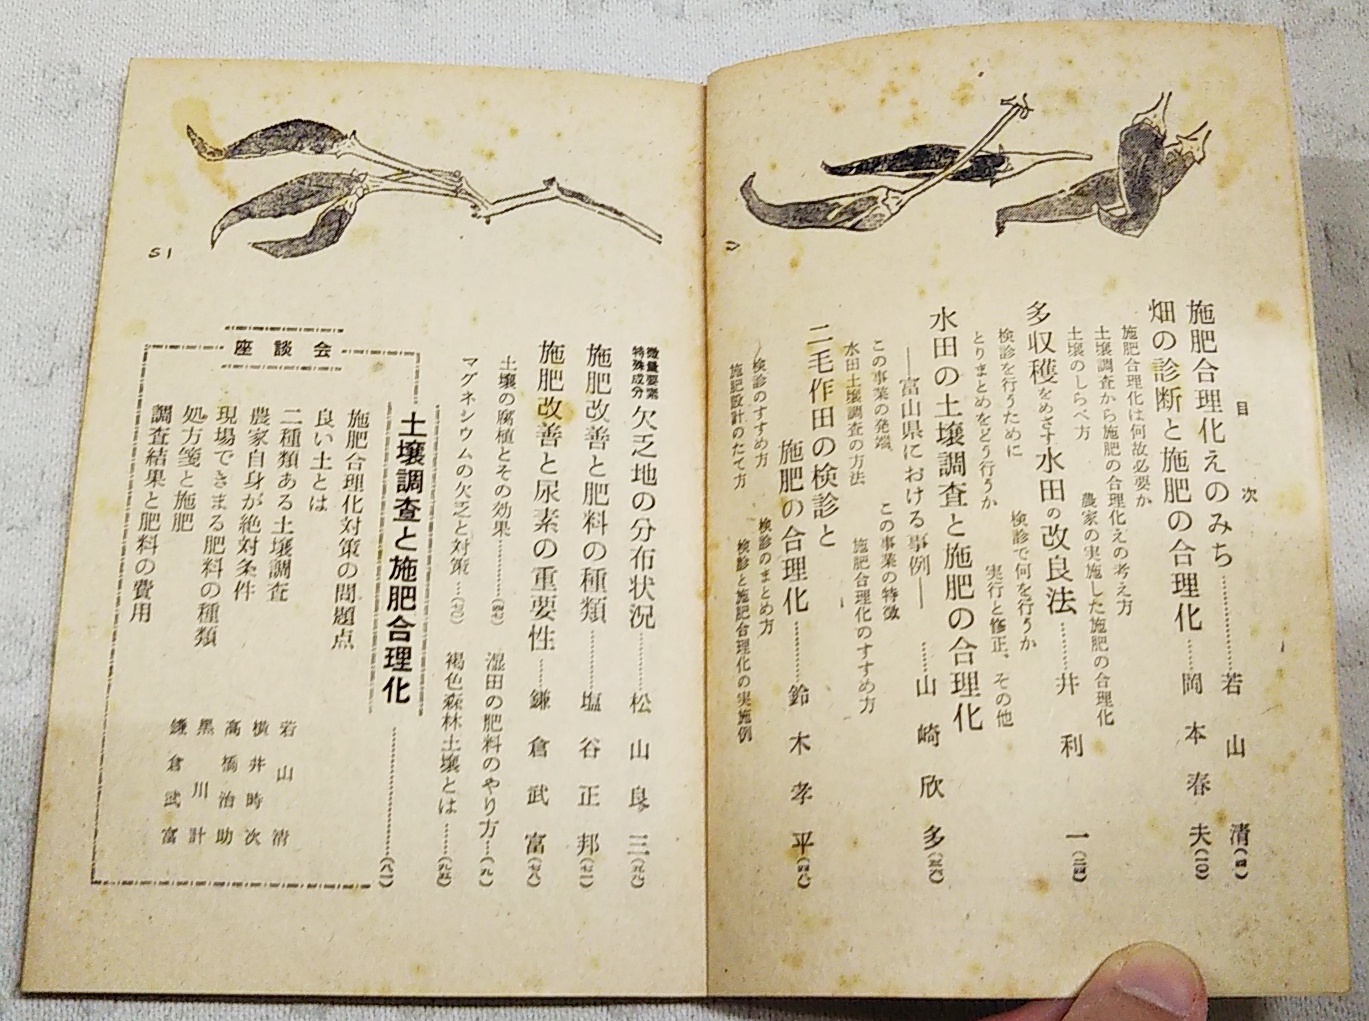 目次
施肥合理化えのみち……若山清(四)
畑の診断と施肥の合理化……岡本春夫(一〇)
施肥合理化は何故必要か
土壌調査から施肥の合理化えの考え方
土壌のしらべ方 農家の実施した施肥の合理化
多収穫をめざす水田の改良法……井利一(二四)
検診を行うために 検診で何を行うか
とりまとめをどう行うか 実行と修正、その他
水田の土壌調査と施肥の合理化
―富山県における事例―……山崎欣多(三六)
この事業の発端 この事業の特徴
水田土壌調査の方法 施肥合理化のすすめ方
二毛作田の検診と
施肥の合理化……鈴木孝平(四八)
検診のすすめ方 検診のまとめ方
施肥設計のたて方 検診と施肥合理化の実施例
微量要素
特殊成分
欠乏地の分布状況……松山良三
施肥改善と肥料の種類……塩谷正邦(七一)
施肥改善と尿素の重要性……鎌倉武富(七八)
土壌の腐植とその効果……(四七) 湿田の肥料のやり方…(九)
マグネシウムの欠乏と対策…(七〇) 褐色森林土壌とは……(九五)
座談会
土壌調査と施肥合理化……(八一)
施肥合理化対策の問題点
良い土とは
二種類ある土壌調査
農家自身が絶対条件
現場できまる肥料の種類
処方箋と施肥
調査結果と肥料の費用
若山清
横井時次
高橋治助
黒川計
鎌倉武富